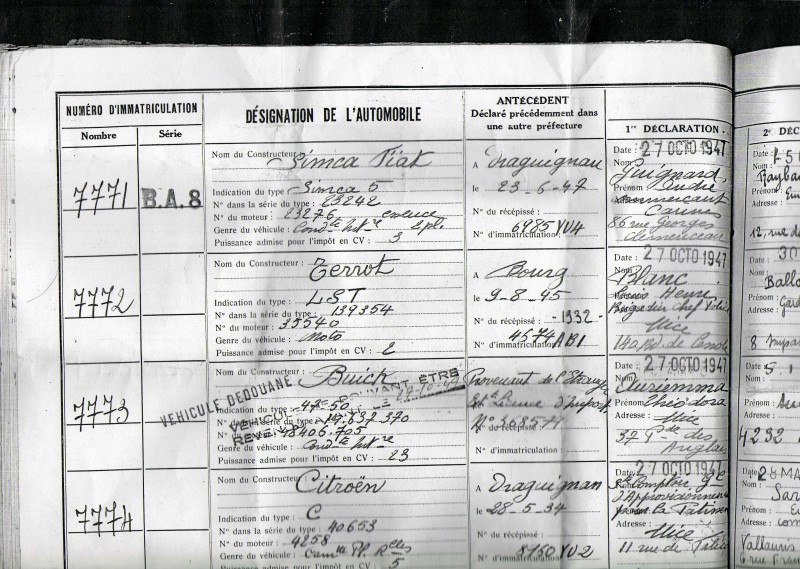 NUMÉRO D'IMMATRICULATION
Nombre
Série
DÉSIGNATION DE L'AUTOMOBILE
ANTÉCÉDENT
Déclaré précédemment dans
une autre préfecture
1re DÉCLARATION
2e DÉC
7771
B.A.8
Nom du Constructeur Simca Fiat
Indication du type : Simca 5
N° dans la série du type : 23242
N° du moteur : 23276 essence
Genre du véhicule : Condte Intre 2 pl.
Puissance admise pour l'impôt en CV : 3
A Draguignan
le 23-6-47
N° du récépissé :
N° d'immatriculation : 6985 YU4
Date : 27 OCTO 1947
Nom : Guignard
Prénom André
commerçant
Cannes
86 rue Georges
Clemenceau
7772
Nom du Constructeur : Terrot
Indication du type : LST
N° dans la série du type : 139354
N° du moteur : 35540
Genre du véhicule : Moto
Puissance admise pour l'impôt en CV : 2
A Bourg
le 9-8-45
N° du récépissé : -1932-
N° d'immatriculation : 4574 AB1
Date : 27 OCTO 1947
Nom : Blanc
Louis Henri
Brigadier Chef
Nice
7773
Nom du Constructeur : Buick
VÉHICULE DÉDOUANÉ
VÉHICULE POUVANT ÊTRE
Indication du type : 47-50
N° dans la série du type : 14.637.370
N° du moteur : 48406.705
Genre du véhicule : Condte Intre
Puissance admise pour l'impôt en CV : 23
Provenant de l'Etranger
N° du récépissé :
N° d'immatriculation :
Date : 27 OCTO 1947
Nom : Auriemma
Prénom : Théodora
Adresse : Nice
37 Pde des
Anglais
7774
Nom du Constructeur : Citroën
Indication du type : C
N° dans la série du type : 40653
N° du moteur : 4258
Genre du véhicule : Camtte Pl. Rles
Puissance admise pour l'impôt en CV : 5
A Draguignan
le 28-5-34
N° du récépissé :
N° d'immatriculation : 8760 YU2
Date : 27 OCTO 1947
Sté Comptoir Gl
d'Approvisionnement
pour la Patisserie
Adresse : Nice
11 rue de
Date :
Nom :
Prénom :
Adresse :
12, rue
Date : 30
Nom :
Prénom :
Adresse :
Date :
Nom :
Prénom :
Adresse :
4232
Date : 28 MA
Nom :
Prénom :
Adresse : com
Vallauris